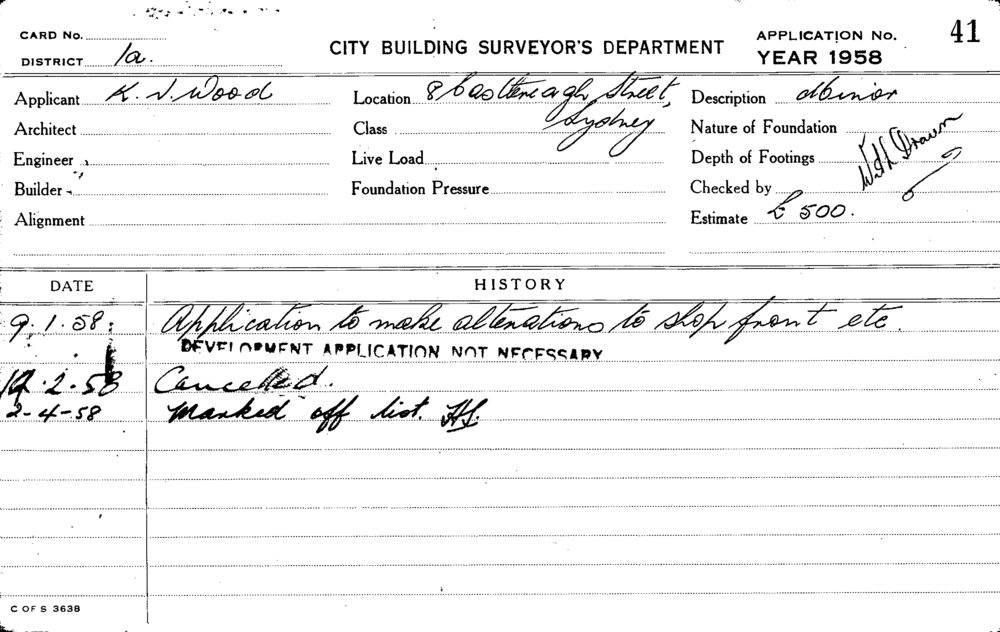 CARD No.
CITY BUILDING SURVEYOR'S DEPARTMENT
APPLICATION No. 41
DISTRICT 1a.
YEAR 1958
Applicant K. J. Wood
Location 8 Castlereagh Street, Sydney
Description Minor
Architect
Class
Nature of Foundation
Engineer
Live Load
Depth of Footings
With Drawn
Builder
Foundation Pressure
Checked by
Alignment
Estimate £ 500.
DATE HISTORY
9.1.58: Application to make alterations to shop front etc.
DEVELOPMENT APPLICATION NOT NECESSARY
2.58 Cancelled.
2-4-58 Marked off list.
C OF S 3638